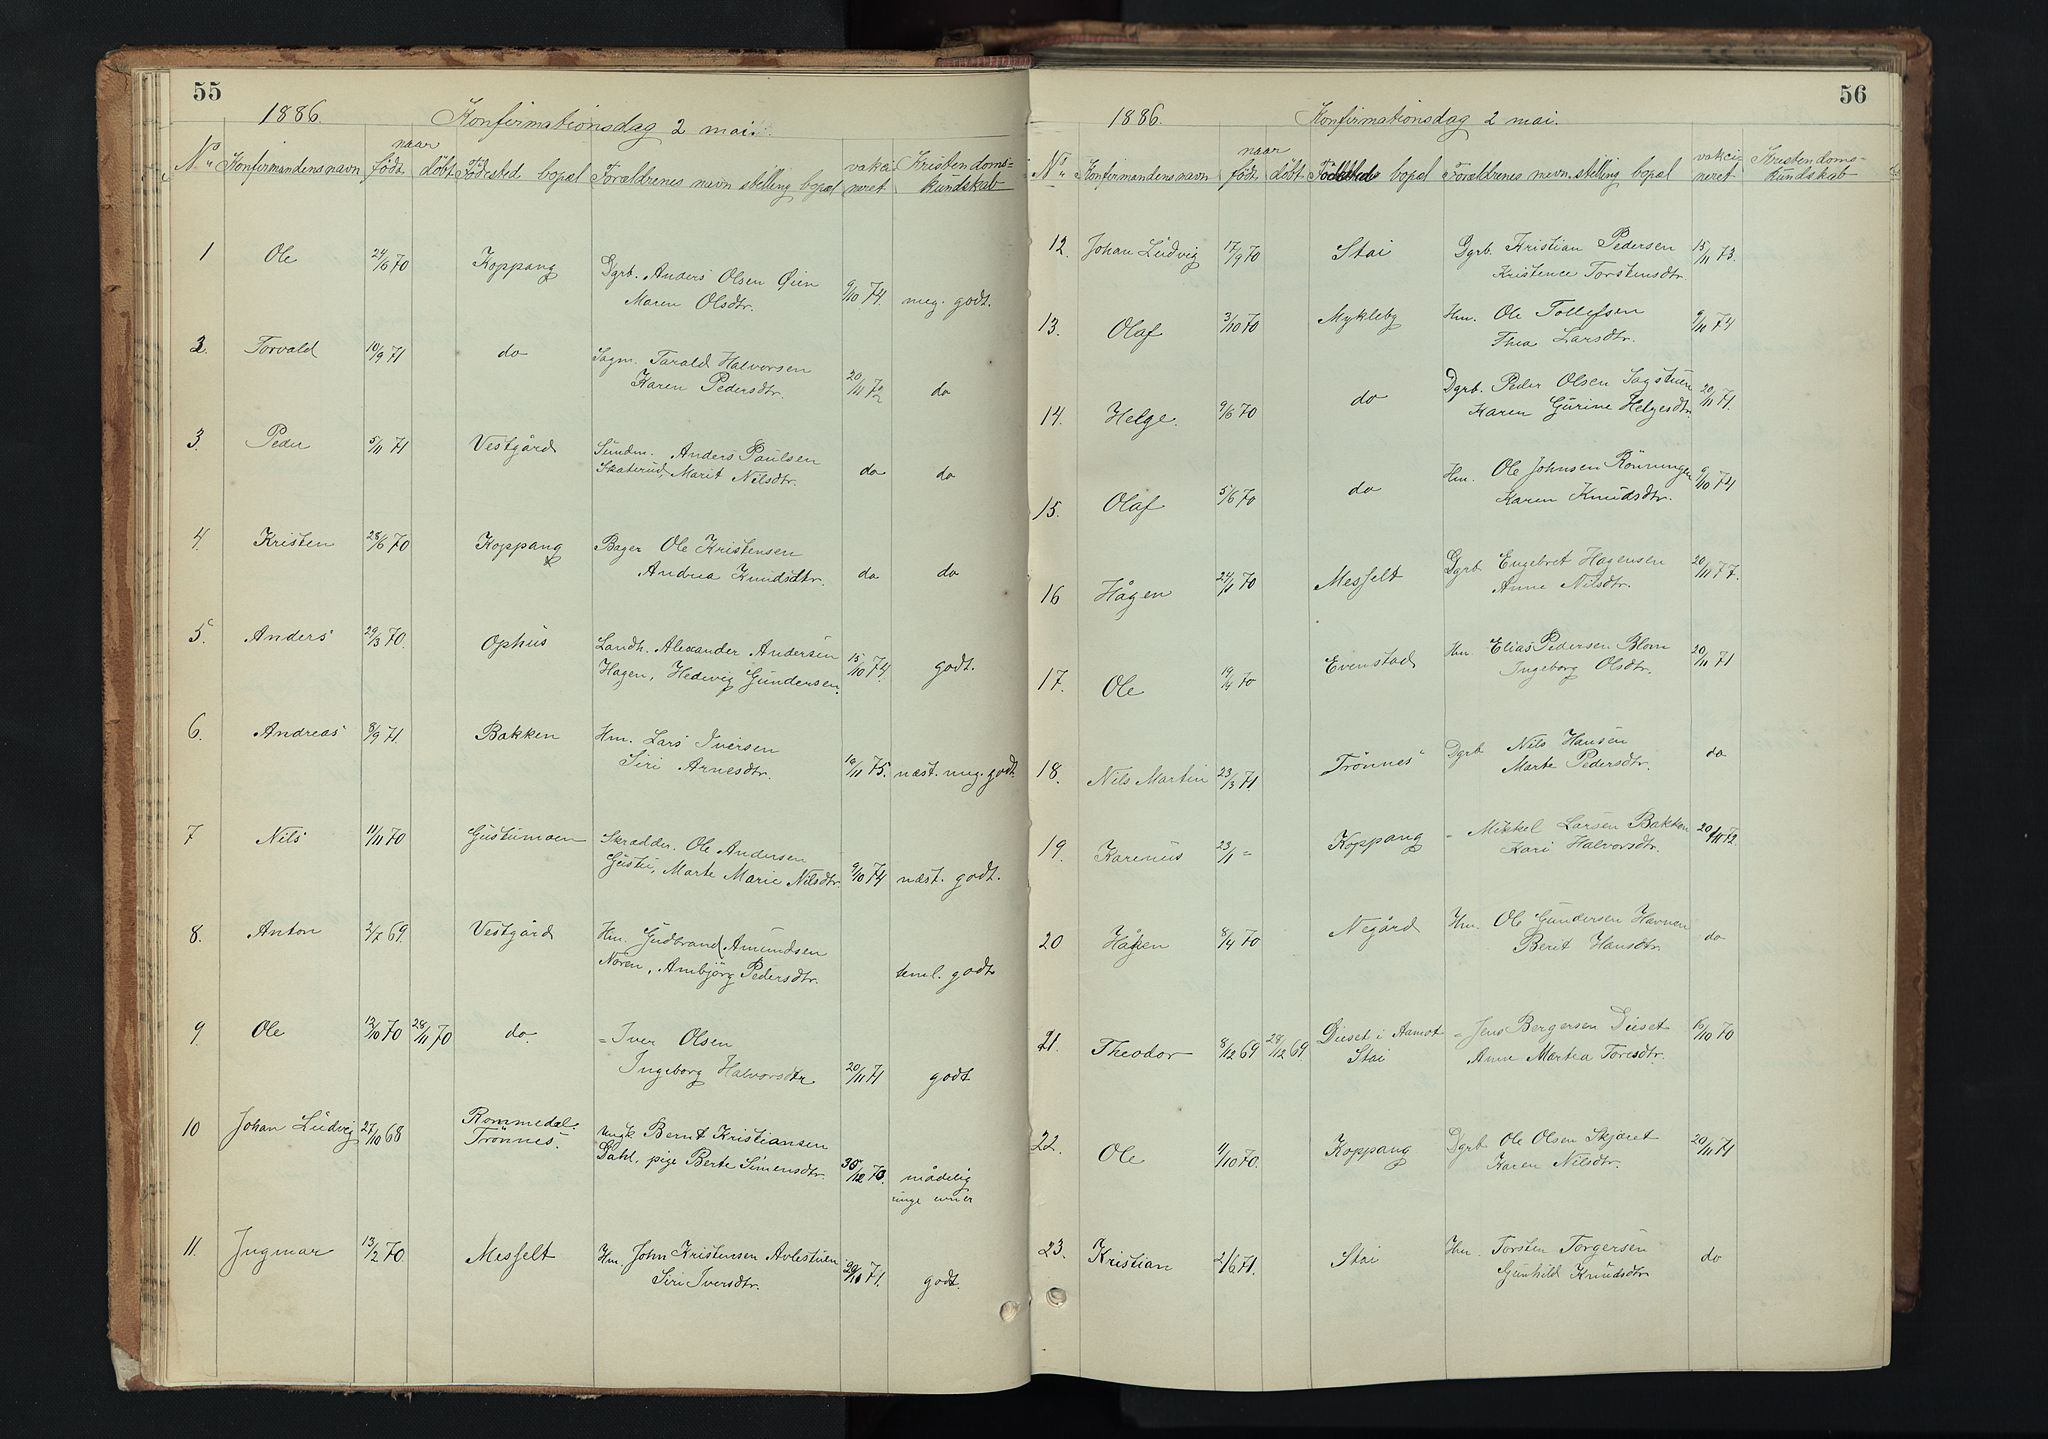 55
1886. Konfirmationsdag 2 mai.
No Konfirmandens navn naar født døbt Fødested bopel Forældrenes navn stelling bopel vakcineret Kristendomskundskab
1 Ole 24/6 70 Koppang Dgrb. Anders Olsen Øien
Maren Olsdtr. 9/10 74. meg. godt.
2. Torvald 10/9 71 do Sagm. Tarald Halvorsen
Karen Pedersdtr. 20/11 72 do
3. Peder 5/11 71 Vestgård Anders Paulsen
Skaterud, Marit Nilsdtr. do do
4. Kristen 28/6 70 Koppang Bager Ole Kristensen
Andrea Knudsdtr. do do
5. Anders 29/3 70. Ophus Landh. Alexander Andersen
Hagen, Hedevig Gundersen. 15/10 74. godt.
6. Andreas 8/9 71. Bakken Hm. Lars Iversen
Siri Arnesdtr. 10/11 75. næst. meg. godt.
7 Nils 11/11 70 Gustumoen Skrædder. Ole Andersen
Gustu, Marte Marie Nilsdtr. 9/10 74 næst. godt.
8. Anton 2/7 69. Vestgård Hm. Gudbrand Amundsen
Noren, Ambjörg Pedersdtr. teml. godt
9. Ole 12/10 70 28/11 70 do. = Iver Olsen
Ingeborg Halvorsdtr 20/11 71 godt
10 Johan Ludvig 27/10 68 Rommedal.
Trönnes. Ungk Bernt Kristiansen
Dahl, pige Berte Simensdtr. 30/12 70. mådelig
11. Ingmar 13/2 70. Messelt Hm. John Kristensen Avlestuen
Siri Iversdtr. 20/11 71. godt.
56
1886. Konfirmationsdag 2 mai.
No Konfirmandens navn naar født døbt Fødested bopel Forældrenes navn stelling bopel vakcineret Kristendomskundskab
12. Johan Ludvig 17/9 70 Stai Dgrb. Kristian Pedersen 15/11 73.
Kristence Torstensdtr.
13. Olaf 3/10 70 Mykleby Hm. Ole Tollefsen 9/11 74
Thea Larsdtr.
14. Helge. 9/6 70 do Dgrb. Peder Olsen Sagstuen 20/11 71.
Karen Gurine Helgesdtr.
15. Olaf 5/6 70 do Hm. Ole Johnsen Rönningen 9/10 74
Karen Knudsdtr.
16 Hågen 24/1 70 Messelt Dgrb Engebret Hagensen 20/11 77.
Anne Nilsdtr.
17. Ole 19/4 70 Evenstad Hm. Elias Pedersen Blom 20/11 71
Ingeborg Olsdtr.
18. Nils Martin 23/3 71 Trönnes Dgrb Nils Hansen do
Marte Pedersdtr.
19. Karenus 23/1 = Koppang = Mikkel Larsen Bakken 20/11 72.
Kari Halvorsdtr.
20 Håken 8/4 70 Negård Hm. Ole Gundersen Havnen do
Berit Hansdtr.
21. Theodor 8/12 69 28/12 69 Duset i Aamot = Jens Bergersen Duset 15/10 70
Stai Anne Martea Toresdtr.
22. Ole 11/10 70. Koppang Dgrb Ole Olsen Skjæret 20/11 71
Karen Nilsdtr.
23. Kristian 2/6 71. Stai Hm. Torsten Torgersen do
Gunhild Knudsdtr